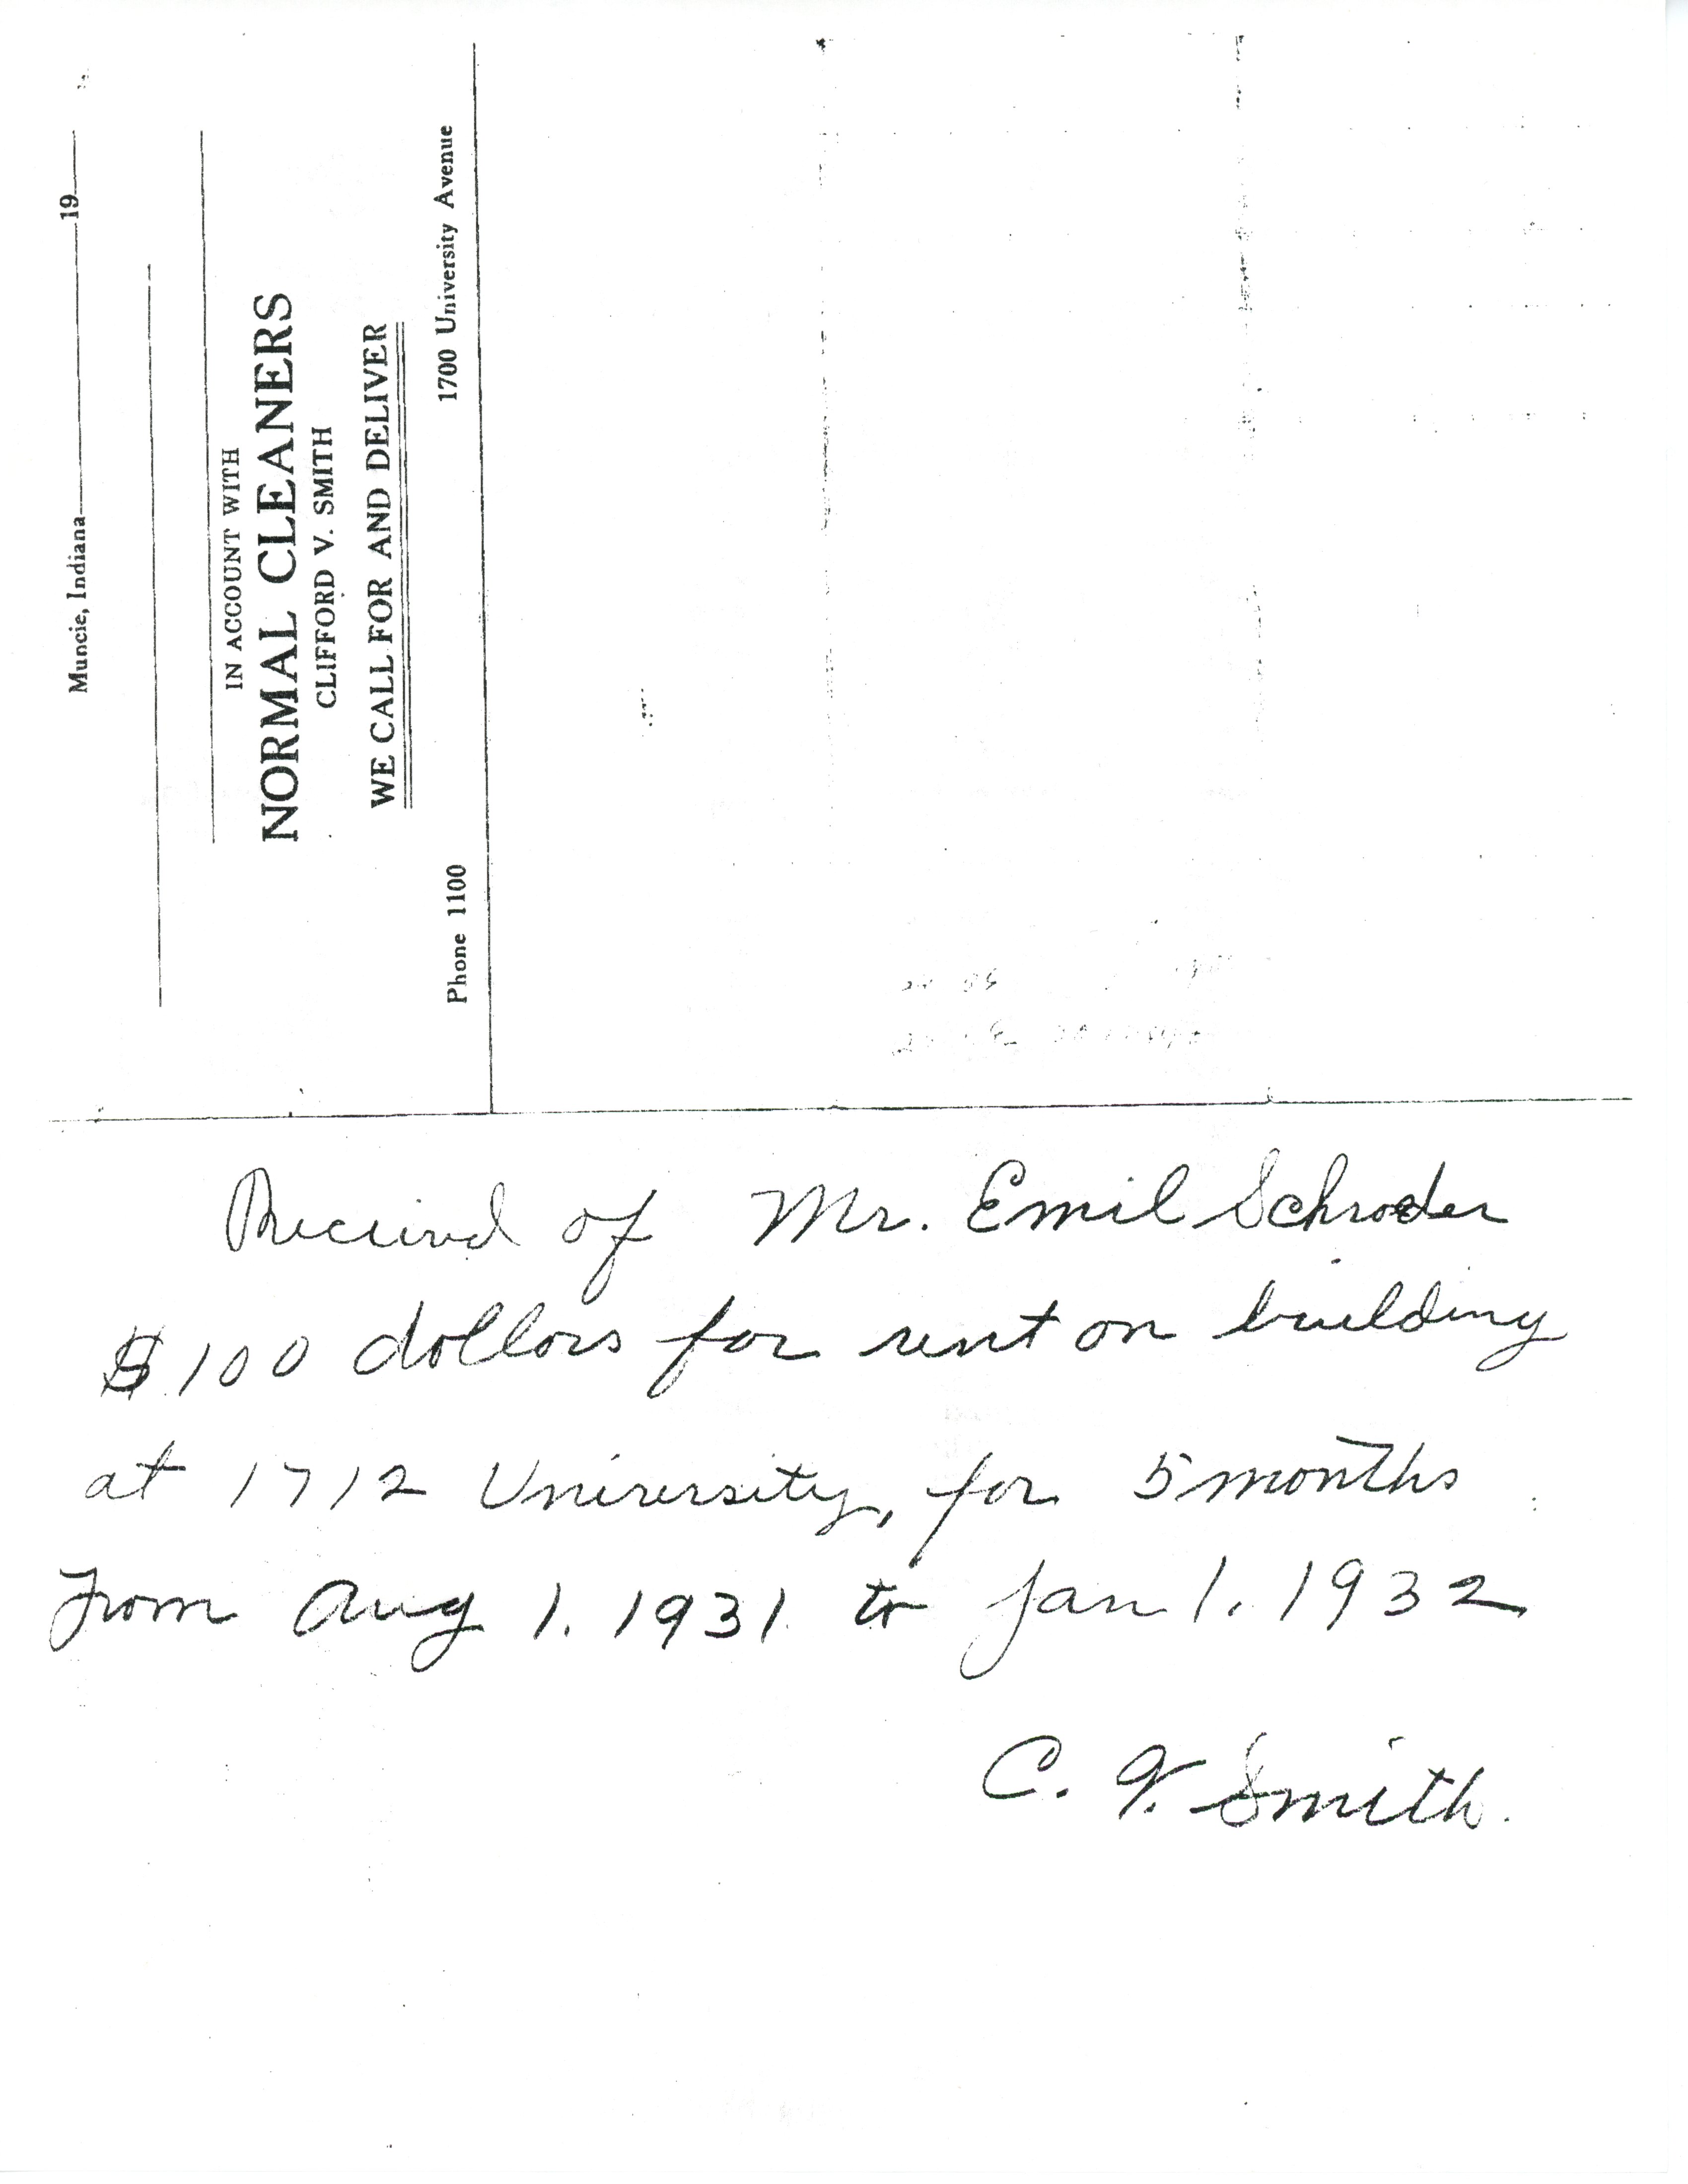 Muncie, Indiana 19
IN ACCOUNT WITH
NORMAL CLEANERS
CLIFFORD V. SMITH
WE CALL FOR AND DELIVER
Phone 1100 1700 University Avenue
Received of Mr. Emil Schroder
$100 dollars for rent on building
at 1712 University, for 5 months
From Aug 1. 1931. to Jan 1. 1932
C. V. Smith.